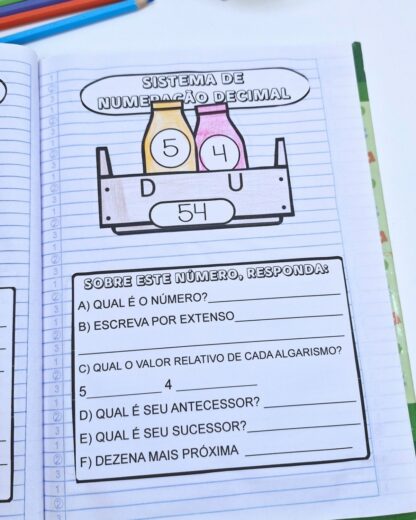 SISTEMA DE
NUMERAÇÃO DECIMAL
5 4
D U
54
SOBRE ESTE NÚMERO, RESPONDA:
A) QUAL É O NÚMERO?
B) ESCREVA POR EXTENSO
C) QUAL O VALOR RELATIVO DE CADA ALGARISMO?
5 4
D) QUAL É SEU ANTECESSOR?
E) QUAL É SEU SUCESSOR?
F) DEZENA MAIS PRÓXIMA